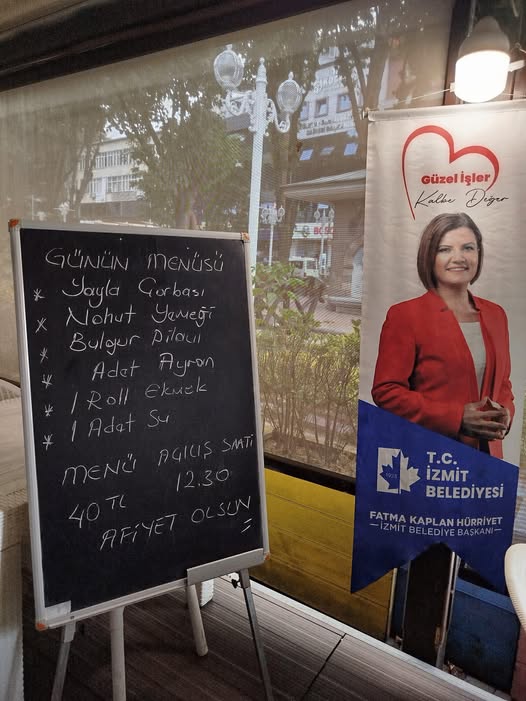 GÜNÜN MENÜSÜ
* Yayla Çorbası
* Nohut Yemeği
* Bulgur Pilavı
* Adet Ayran
* 1 Roll Ekmek
* 1 Adat Su
MENÜ AÇILIŞ SAATİ
40 TL 12.30
AFİYET OLSUN
Güzel İşler
Kalbe Değer
T.C.
İZMİT
BELEDİYESİ
FATMA KAPLAN HÜRRİYET
İZMİT BELEDİYE BAŞKANI